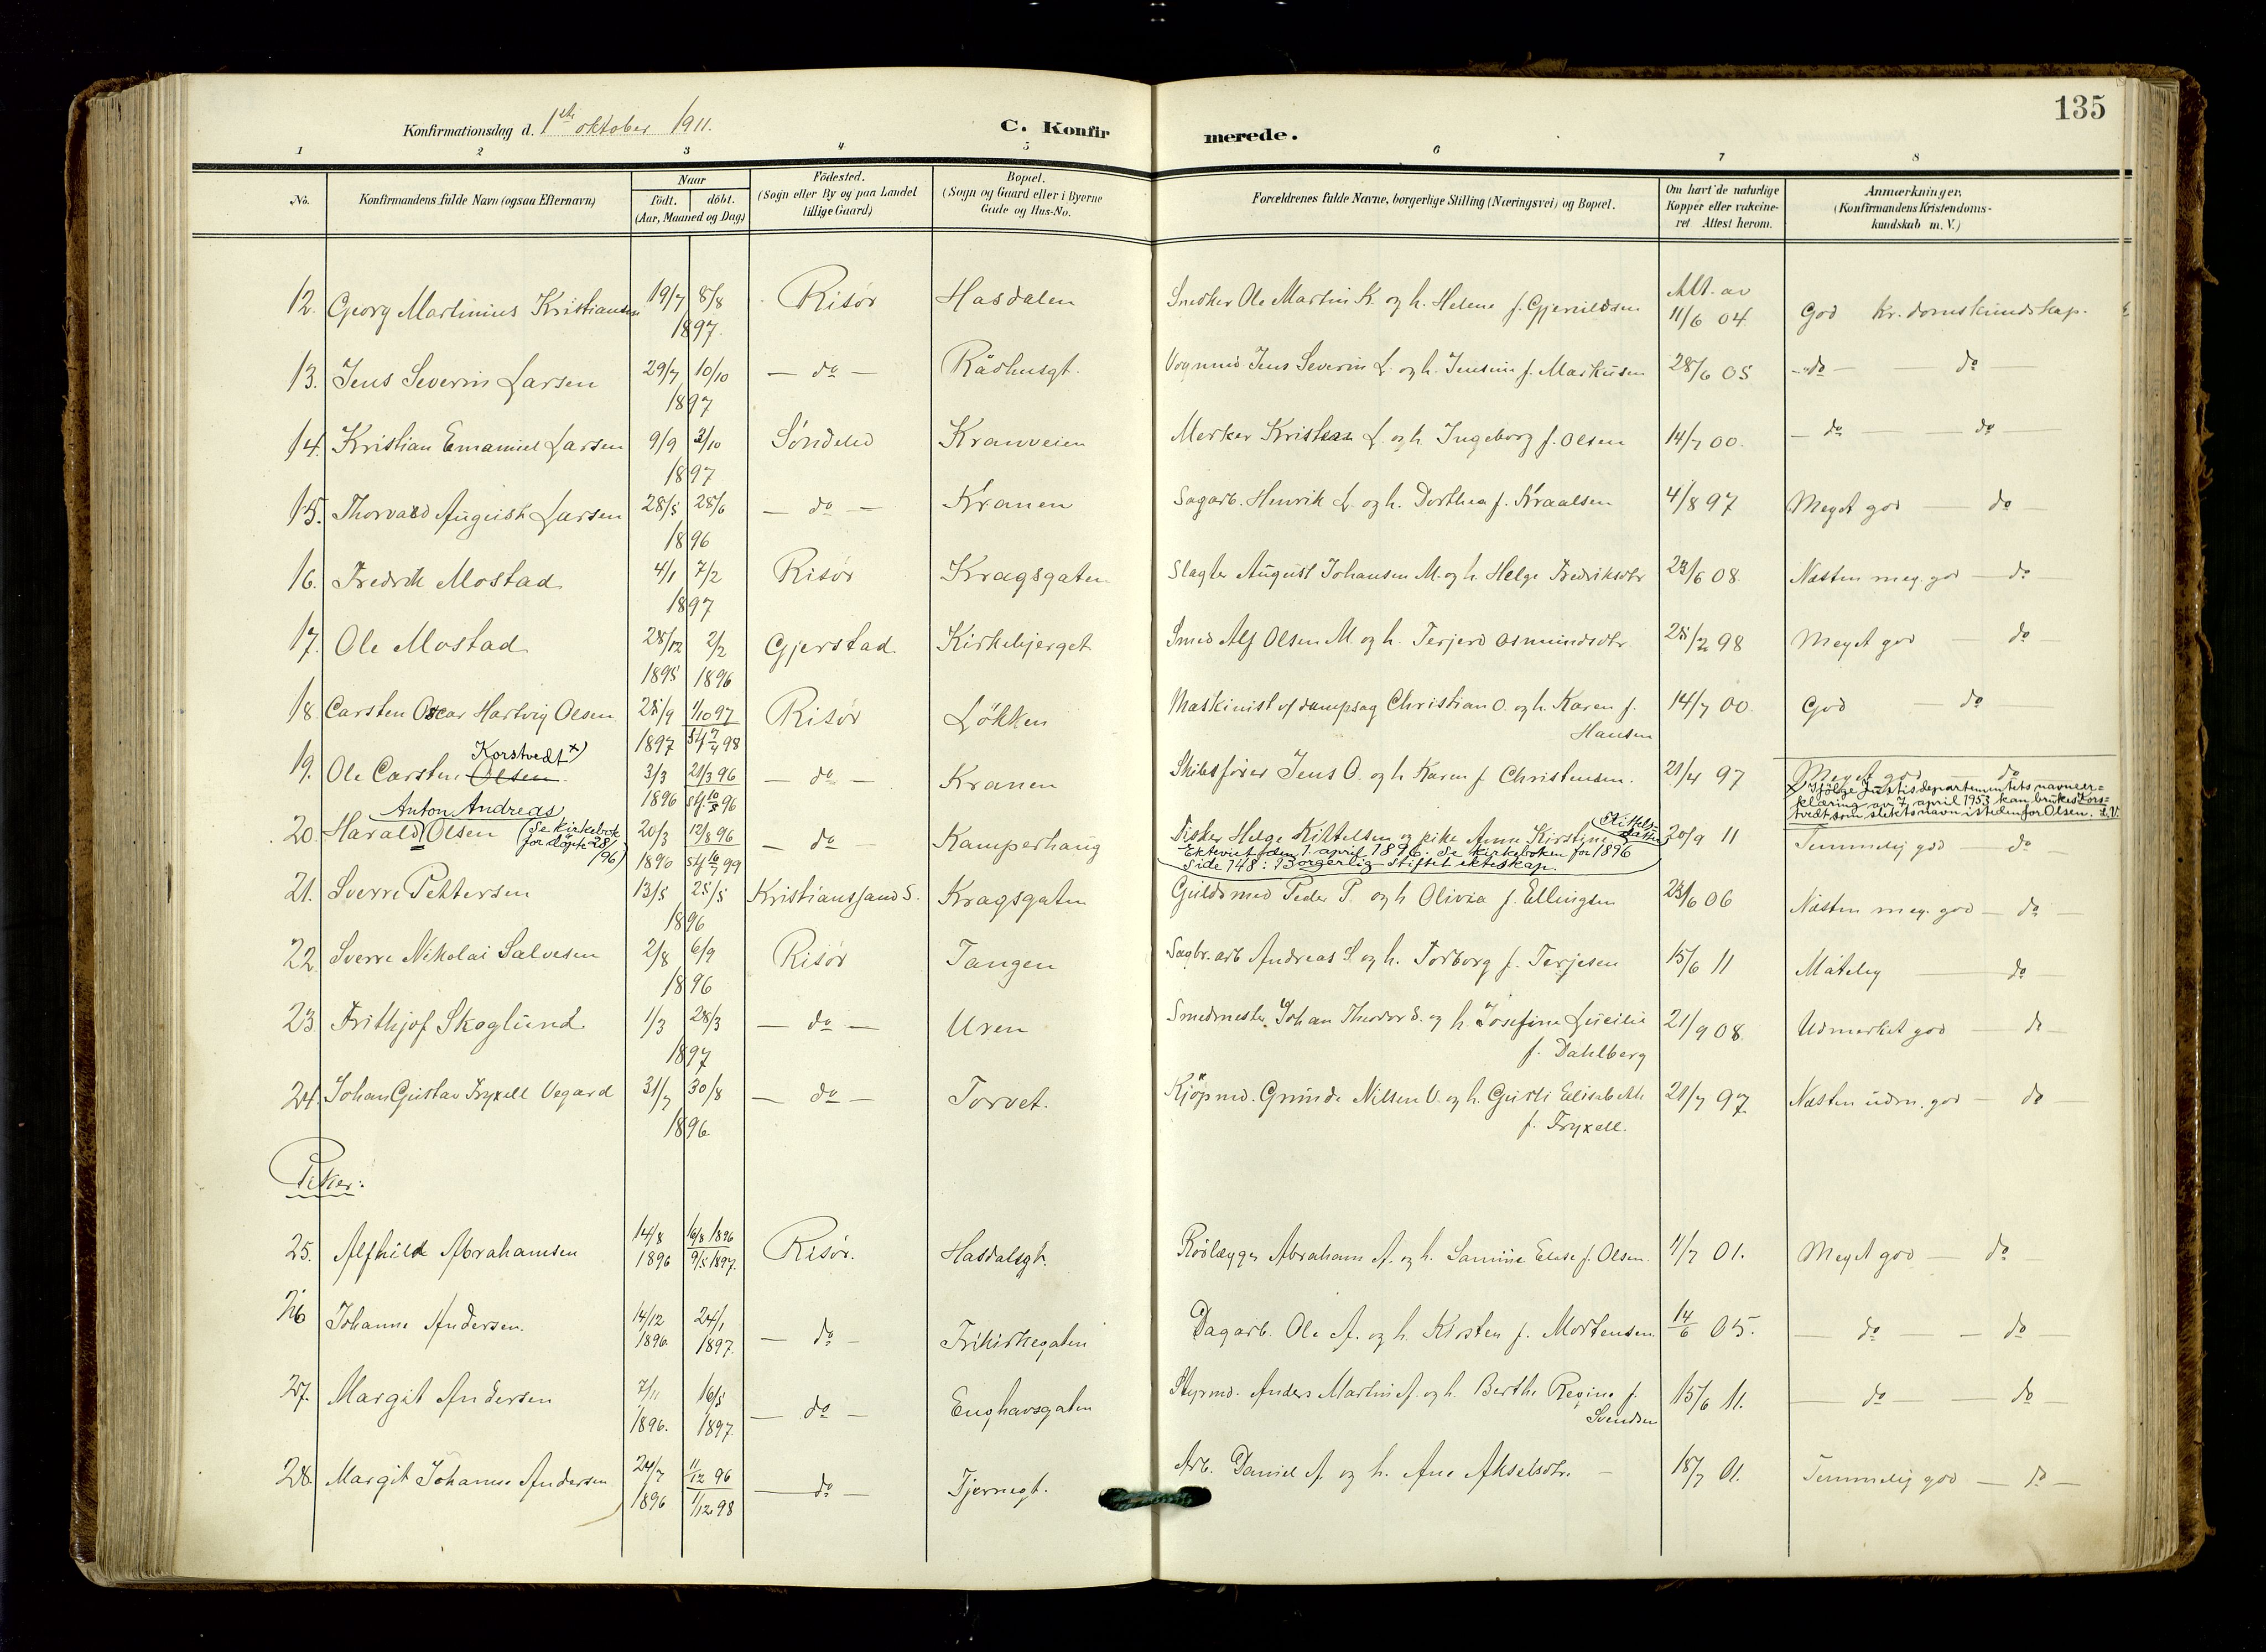 135
Konfirmationsdag d. 1ste oktober 1911.
C. Konfirmerede.
1 2 3 4 5 6 7 8
No. Konfirmandens fulde Navn (ogsaa Efternavn) Naar födt. döbt. (Aar, Maaned og Dag) Födested. (Sogn eller By og paa Landet tillige Gaard) Bopæl. (Sogn og Gaard eller i Byerne Gade og Hus-No. Forældrenes fulde Navne, borgerlige Stilling (Næringsvei) og Bopæl. Om havt de naturlige Kopper eller vakcineret Attest herom. Anmærkninger. (Konfirmandens Kristendomskundskab m. V.)
12. Georg Martinius Kristiansen 19/7 8/8 1897. Risør Hasdalen Snedker Ole Martin K. og h. Helene f. Gjeruldsen Att. av 11/6 04 God kr.domskundskap.
13. Jens Severin Larsen 29/7 10/10 1897 — do — Rådhusgt. Vognmd Jens Severin L. og h. Jensine f. Markussen 28/6 05 — do — do
14. Kristian Emanuel Larsen 9/9 3/10 1897 Søndeled Kranveien Merker Kristian L. og h. Ingeborg f. Olsen 14/7 00. — do — do —
15. Thorvald August Larsen 28/5 28/6 1896 — do — Kranen Sagarb. Henrik L. og h. Dorthea f. Kraalsen 4/8 97 Meget god — do —
16. Fredrik Mostad 4/1 7/2 1897 Risør Kragsgaten Slagter August Johansen M. og h. Helge Fredriksdtr 23/6 08. Næsten meg. god — do
17. Ole Mostad 28/12 1895 2/2 1896 Gjerstad Kirkebjerget Smed Alf Olsen M. og h. Terjerd Osmundsdtr. 25/2 98 Meget god — do —
18. Carsten Oscar Hartvig Olsen 25/9 1897 1/10 97 st 7/4 98 Risør Løkken Maskinist v/ dampsag Christian O. og h. Karen f. Hansen 14/7 00. God — do
19. Ole Carsten Olsen Korstvedt x) 3/3 1896 21/3 96 st 10/5 96 — do — Kranen Skibsfører Jens O. og h Karen f. Christensen. 21/4 97 Meget god — do
x) Ifølge Justisdepartementets navneer-
klæring av 7 april 1953 kan brukes Kors-
tvedt som slektsnavn istedenfor Olsen. L.V.
20. Harald Anton Andreas Olsen (Se kirkebok for døpte 28/96) 20/3 1896 12/8 96 st 16/7 99 — do — Kamperhaug Fisker Helge Kittelsen og pike Anne Kirstine Kittelsdatter 20/9 11 Temmelig god — do —
Ektevict den 1. april 1896. Se kirkeboken for 1896
side 148: Borgerlig stiftet ekteskap.
21. Sverre Pettersen 13/5 25/5 1896 Kristianssand S. Kragsgaten Guldsmed Peder P. og h Olivia f. Ellingsen 23/6 06 Næsten meg. god — do —
22. Sverre Nikolai Salvesen 2/8 6/9 1896 Risør Tangen Sagbr.arb Andreas S. og h. Torborg f. Terjesen 15/6 11 Måtelig — do
23. Frithjof Skoglund 1/3 28/3 1897 — do — Uren Smedmester Johan Theodor S. og h. Josefine Lucilie f. Dahlberg 21/9 08 Udmerket god — do —
24. Johan Gustav Fryxell Vegard 31/7 30/8 1896 — do — Torvet. Kjøpmd. Grunde Nilsen V. og h. Gurli Elisabeth f. Fryxell. 21/7 97. Næsten udm. god — do —
Piker:
25. Alfhild Abrahamsen 14/8 1896 16/8 1896 9/5 1897. Risør. Hasdalsgt. Rørlægger Abraham A. og h. Samine Elise f. Olsen. 11/7 01. Meget god — do —
26 Johanne Andersen. 14/12 1896. 24/1 1897. — do — Frikirkegaten Dagarb. Ole A. og h. Kirsten f. Mortensen. 14/6 05. — do — do —
27. Margit Andersen 7/11 1896. 16/5 1897. — do — Enghavsgaten Styrmd. Anders Martin A. og h. Berthe Regine f. Svendsen 15/6 11. — do — do —
28. Margit Johanne Andersen 24/7 1896 11/12 96 1/12 98 — do — Tjernegt. Arb. Daniel A. og h. Ane Akselsdtr. 18/7 01. Temmelig god — do —